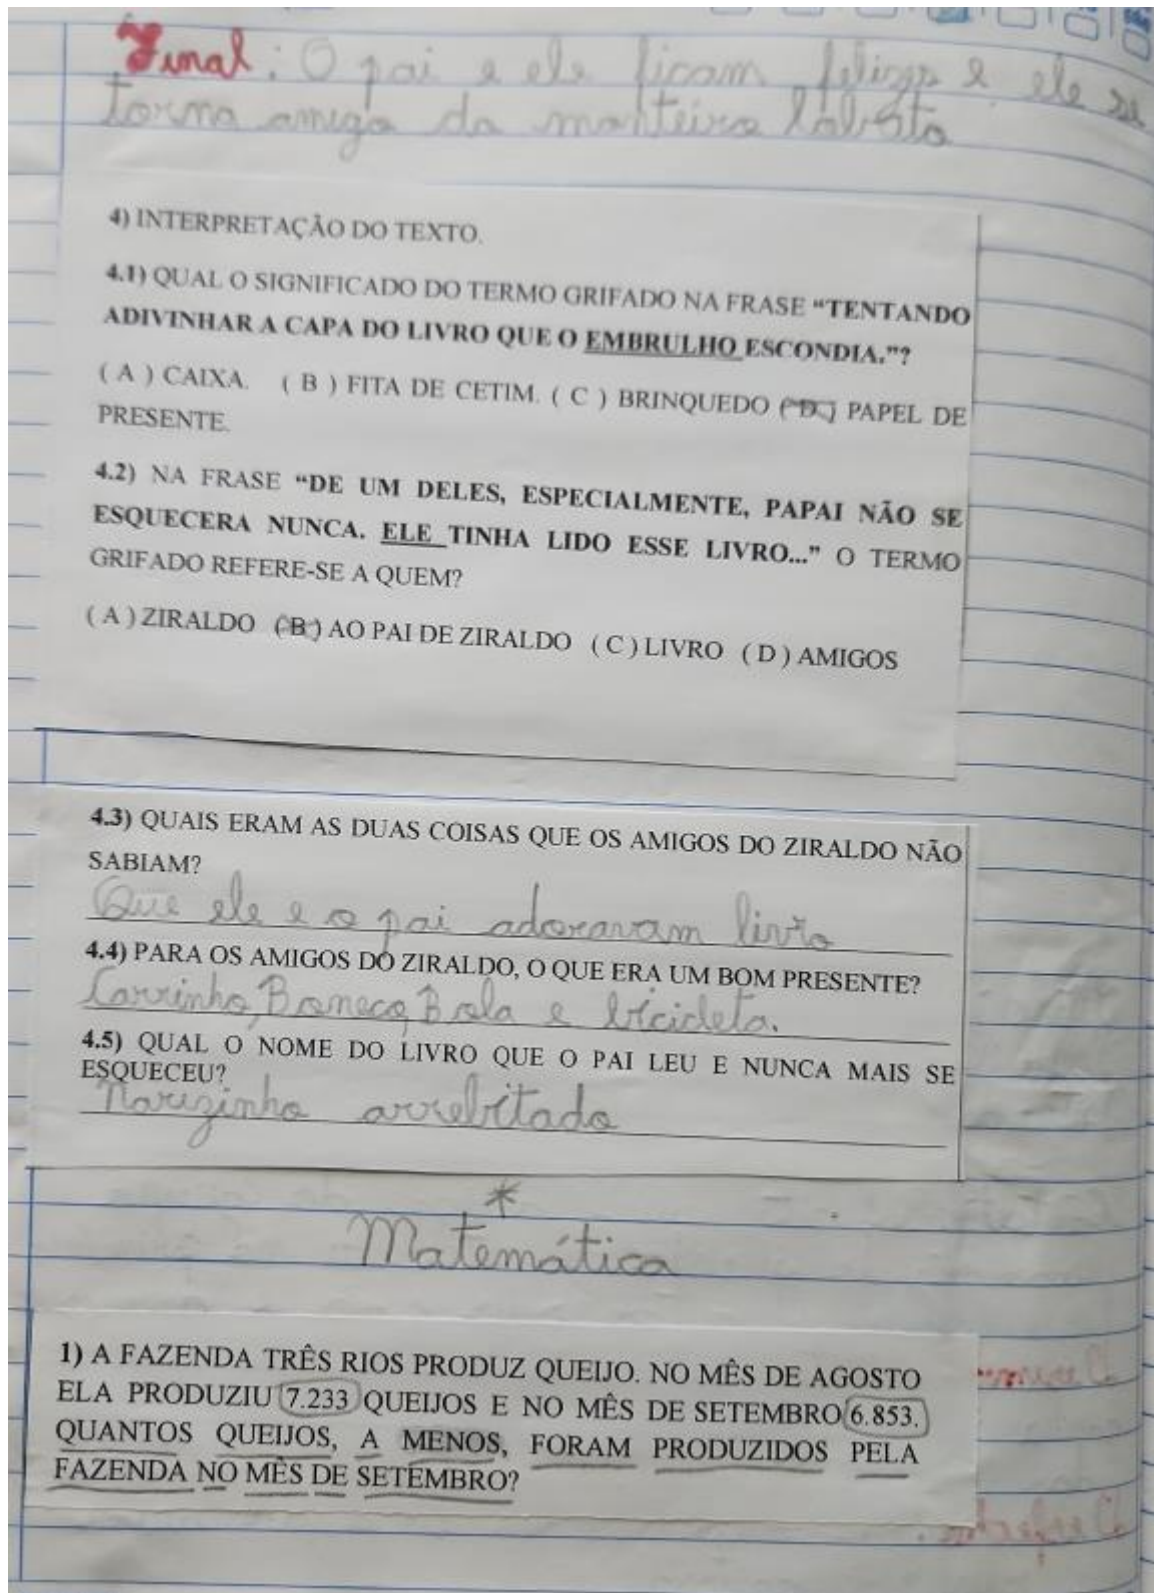 Final: O pai e ele ficam felizes e ele se
torna amigo do monteiro lobato
4) INTERPRETAÇÃO DO TEXTO.
4.1) QUAL O SIGNIFICADO DO TERMO GRIFADO NA FRASE “TENTANDO
ADIVINHAR A CAPA DO LIVRO QUE O EMBRULHO ESCONDIA.”?
( A ) CAIXA. ( B ) FITA DE CETIM. ( C ) BRINQUEDO ( D ) PAPEL DE
PRESENTE.
4.2) NA FRASE “DE UM DELES, ESPECIALMENTE, PAPAI NÃO SE
ESQUECERA NUNCA. ELE TINHA LIDO ESSE LIVRO...” O TERMO
GRIFADO REFERE-SE A QUEM?
( A ) ZIRALDO ( B ) AO PAI DE ZIRALDO ( C ) LIVRO ( D ) AMIGOS
4.3) QUAIS ERAM AS DUAS COISAS QUE OS AMIGOS DO ZIRALDO NÃO
SABIAM?
Que ele e o pai adoravam livro
4.4) PARA OS AMIGOS DO ZIRALDO, O QUE ERA UM BOM PRESENTE?
Carrinho, Boneco, Bola e bicicleta.
4.5) QUAL O NOME DO LIVRO QUE O PAI LEU E NUNCA MAIS SE
ESQUECEU?
Narizinho arrebitado
*
Matemática
1) A FAZENDA TRÊS RIOS PRODUZ QUEIJO. NO MÊS DE AGOSTO
ELA PRODUZIU 7.233 QUEIJOS E NO MÊS DE SETEMBRO 6.853.
QUANTOS QUEIJOS, A MENOS, FORAM PRODUZIDOS PELA
FAZENDA NO MÊS DE SETEMBRO?